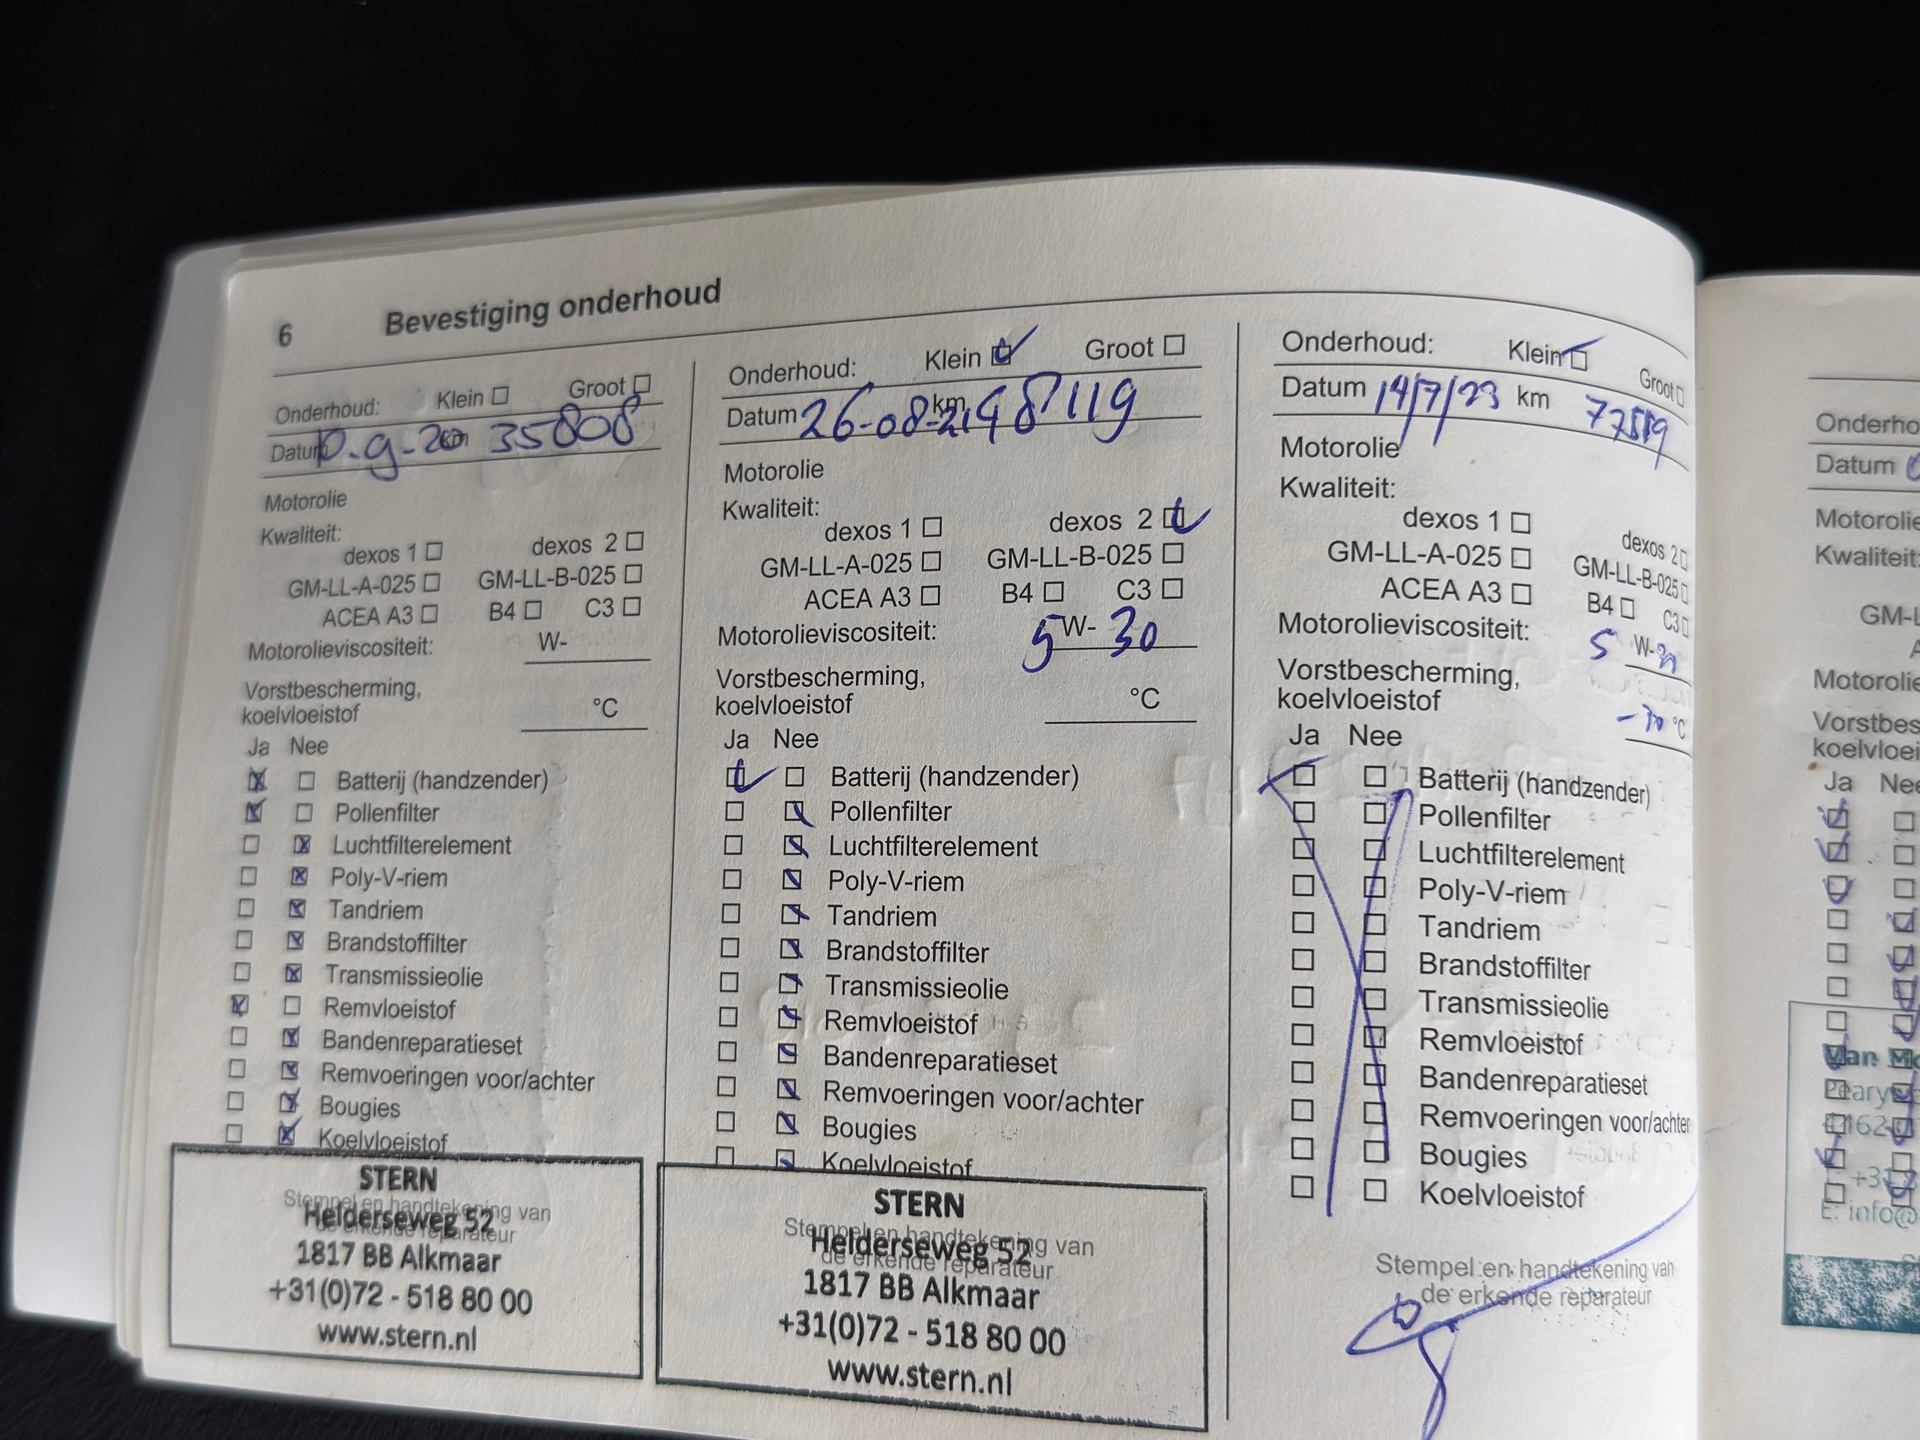 6 Bevestiging onderhoud
Onderhoud: Klein Groot
Datum 10-9-20 km 35808
Motorolie
Kwaliteit:
dexos 1 dexos 2
GM-LL-A-025 GM-LL-B-025
ACEA A3 B4 C3
Motorolieviscositeit: W-
Vorstbescherming,
koelvloeistof °C
Ja Nee
Batterij (handzender)
Pollenfilter
Luchtfilterelement
Poly-V-riem
Tandriem
Brandstoffilter
Transmissieolie
Remvloeistof
Bandenreparatieset
Remvoeringen voor/achter
Bougies
Koelvloeistof
Stempel en handtekening van
de erkende reparateur
STERN
Helderseweg 52
1817 BB Alkmaar
+31(0)72 - 518 80 00
www.stern.nl
Onderhoud: Klein Groot
Datum 26-08-21 km 48119
Motorolie
Kwaliteit:
dexos 1 dexos 2
GM-LL-A-025 GM-LL-B-025
ACEA A3 B4 C3
Motorolieviscositeit: 5 W- 30
Vorstbescherming,
koelvloeistof °C
Ja Nee
Batterij (handzender)
Pollenfilter
Luchtfilterelement
Poly-V-riem
Tandriem
Brandstoffilter
Transmissieolie
Remvloeistof
Bandenreparatieset
Remvoeringen voor/achter
Bougies
Koelvloeistof
Stempel en handtekening van
de erkende reparateur
STERN
Helderseweg 52
1817 BB Alkmaar
+31(0)72 - 518 80 00
www.stern.nl
Onderhoud: Klein Groot
Datum 14/7/23 km
Motorolie
Kwaliteit:
dexos 1 dexos 2
GM-LL-A-025 GM-LL-B-025
ACEA A3 B4 C3
Motorolieviscositeit: 5 W-
Vorstbescherming,
koelvloeistof °C
Ja Nee
Batterij (handzender)
Pollenfilter
Luchtfilterelement
Poly-V-riem
Tandriem
Brandstoffilter
Transmissieolie
Remvloeistof
Bandenreparatieset
Remvoeringen voor/achter
Bougies
Koelvloeistof
Stempel en handtekening van
de erkende reparateur
Datum
Kwaliteit:
Ja
E: info@